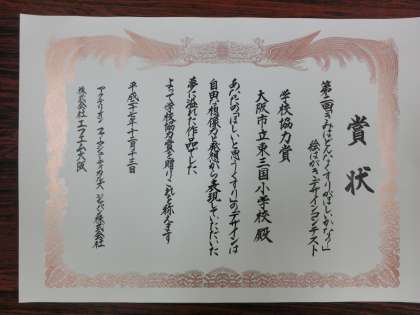 賞状
第二回「きみはどんなくすりがほしいかな?」
絵はがきデザインコンテスト
学校協力賞
大阪市立東三国小学校 殿
あなたの「ほしいと思うくすり」のデザインは
自由な想像力と発想から表現していただいた
夢に溢れた作品でした
よって学校協力賞を贈りこれを称えます
平成二十七年十二月十三日
アクテリオン ファーマシューティカルズ ジャパン株式会社
株式会社エフエム大阪